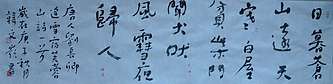 日暮蒼
山遠天
寒白屋
貧柴門
聞犬吠
風雪夜
歸人
唐劉長卿
逢雪宿芙蓉
山詩
歲在庚子秋月